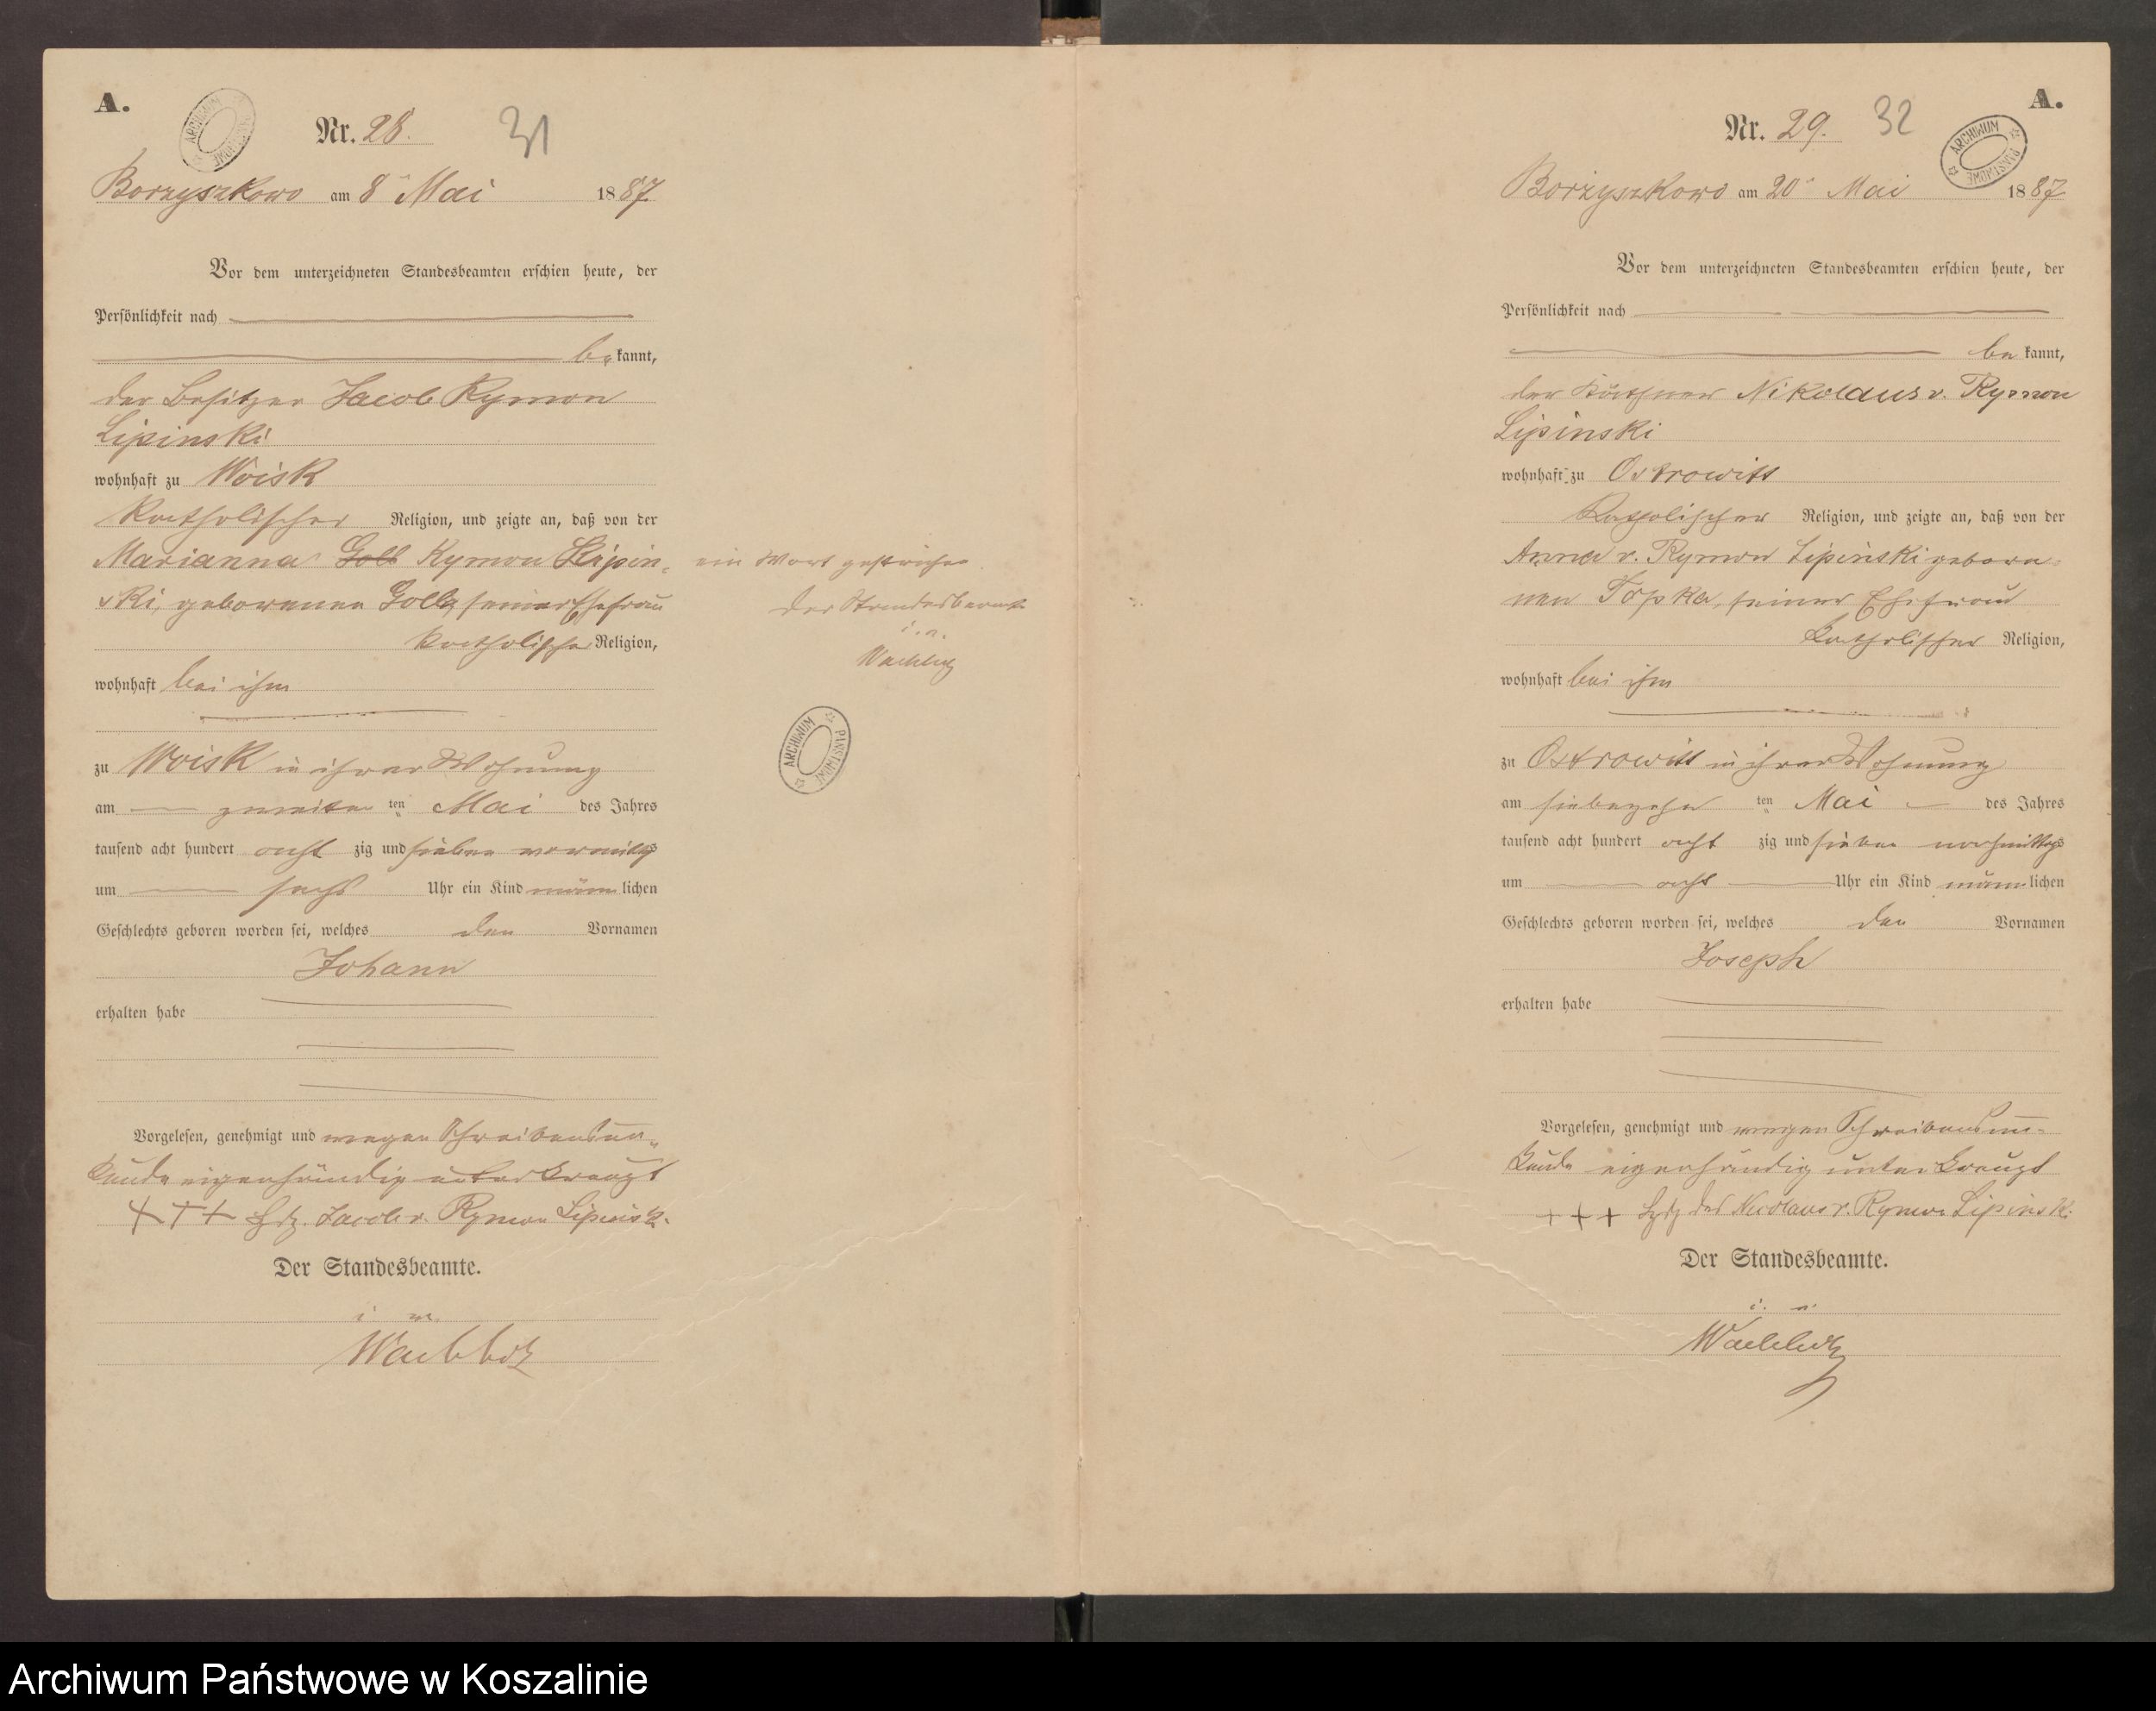 A.
ARCHIWUM PAŃSTWOWE
Nr. 28. 31
Borzyszkowo am 8ᵗ Mai 1887
Vor dem unterzeichneten Standesbeamten erschien heute, der
Persönlichkeit nach
be kannt,
der Besitzer Jacob Rymon
Lipinski
wohnhaft zu Woisk
katholischer Religion, und zeigte an, daß von der
Marianna Goll Rymon Lipin-
ski, geborenen Goll, seiner Ehefrau
katholischer Religion,
wohnhaft bei ihm
zu Woisk in ihrer Wohnung
am zweiten ten Mai des Jahres
tausend acht hundert acht zig und sieben vormittags
um sechs Uhr ein Kind männ lichen
Geschlechts geboren worden sei, welches den Vornamen
Johann
erhalten habe
Vorgelesen, genehmigt und wegen Schreibensun-
kunde eigenhändig unterkreuzt
+++ Hdz. Jacob v. Rymon Lipinski.
Der Standesbeamte.
Wachholz
ein Wort gestrichen.
Der Standesbeamte
Wachholz
ARCHIWUM PAŃSTWOWE
A.
ARCHIWUM PAŃSTWOWE
Nr. 29. 32
Borzyszkowo am 20ᵗ Mai 1887
Vor dem unterzeichneten Standesbeamten erschien heute, der
Persönlichkeit nach
be kannt,
der Käthner Nikolaus v. Rymon
Lipinski
wohnhaft zu Ostrowitt
katholischer Religion, und zeigte an, daß von der
Anna v. Rymon Lipinski gebore-
nen Topka, seiner Ehefrau
katholischer Religion,
wohnhaft bei ihm
zu Ostrowitt in ihrer Wohnung
am siebzehn ten Mai des Jahres
tausend acht hundert acht zig und sieben nachmittags
um acht Uhr ein Kind männ lichen
Geschlechts geboren worden sei, welches den Vornamen
Joseph
erhalten habe
Vorgelesen, genehmigt und wegen Schreibensun-
kunde eigenhändig unterkreuzt
+++ Hdz des Nicolaus v. Rymon Lipinski.
Der Standesbeamte.
Wachholz
Archiwum Państwowe w Koszalinie